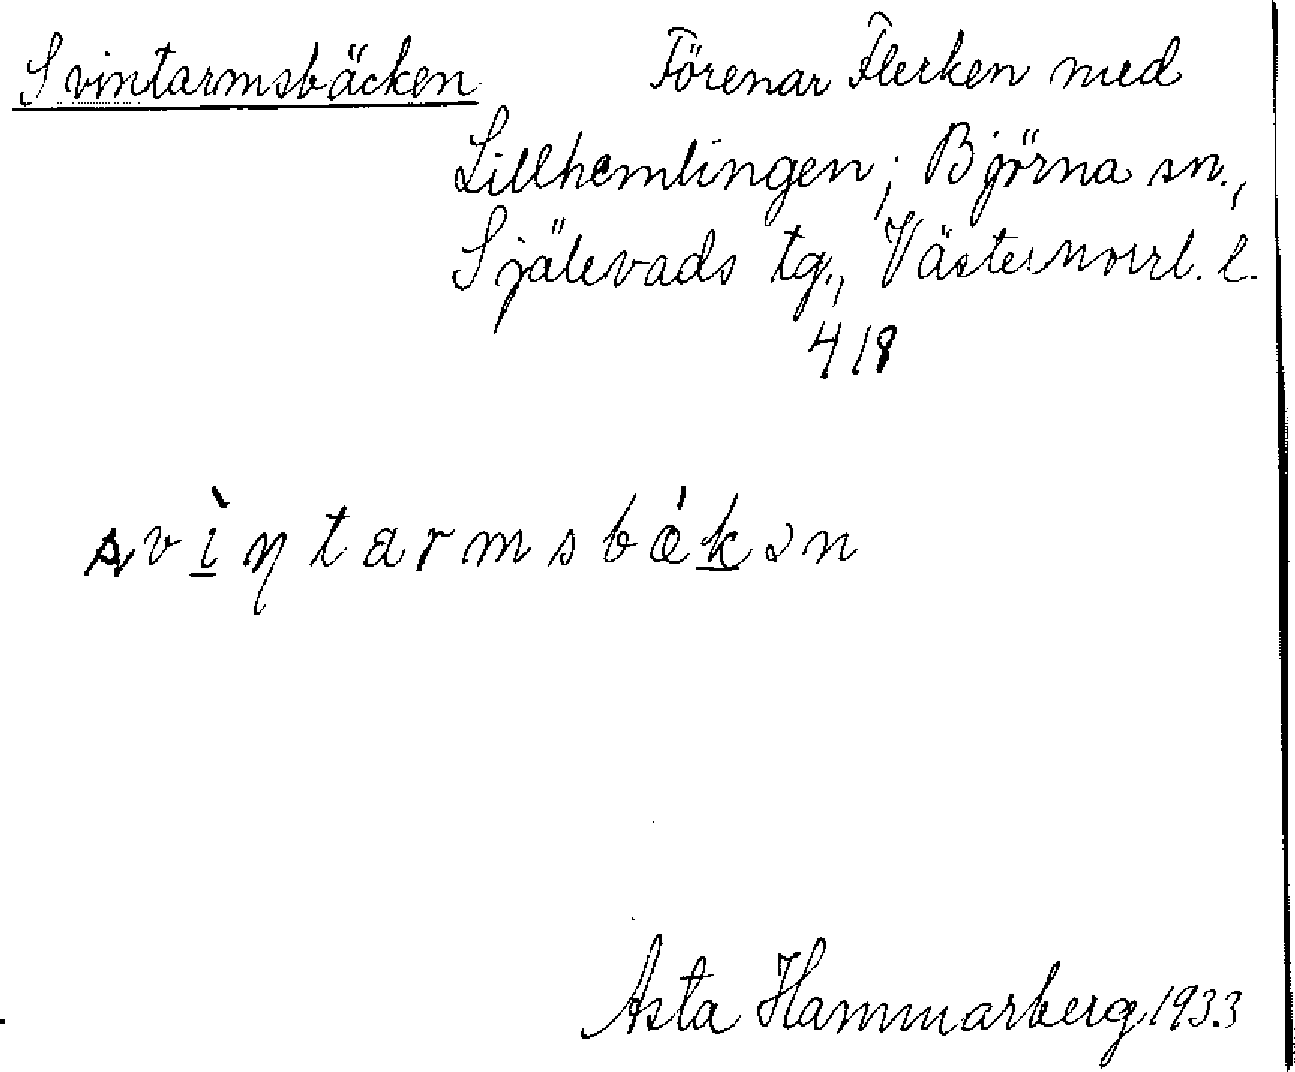 Svintarmsbäcken Förenar Flerken med
Lillhemlingen; Björna sn.,
Själevads tg., Västernorrl. l.
418
svì̱ŋtarmsbǽḵən
Asta Hammarberg 1933